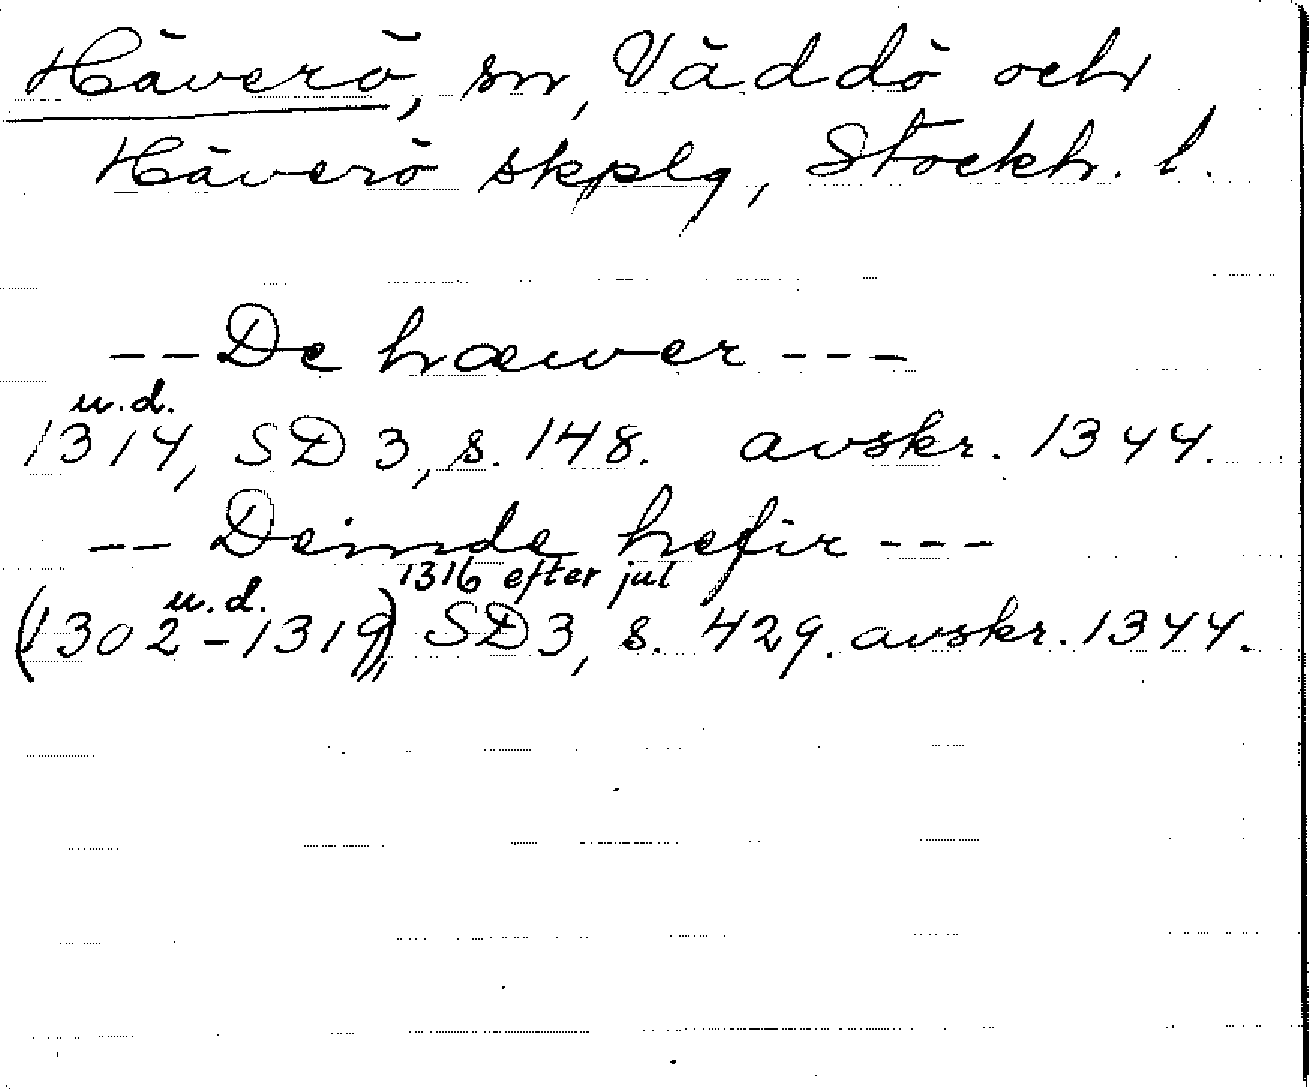 Häverö, sn, Väddö och
Häverö skplg, Stockh. l.
--De hæwer---
u.d.
1314, SD 3, s. 148. avskr. 1344.
-- Deinde hefir---
1316 efter jul
u.d.
(1302-1319), SD3, s. 429. avskr. 1344.